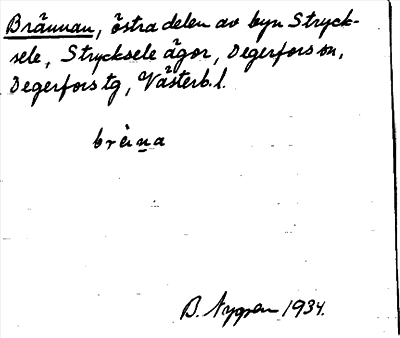 Brännan, östra delen av byn Stryck-
sele, Strycksele ägor, Degerfors sn,
Degerfors tg, Västerb. l.
bräna
B. Nygren 1934.